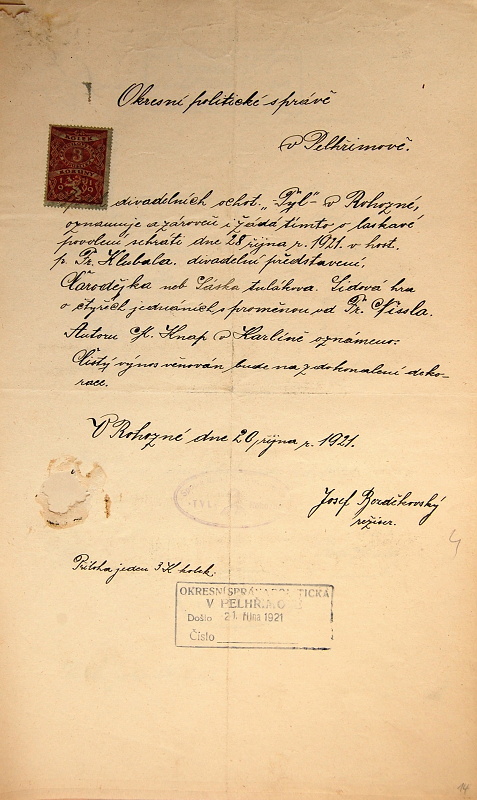 Okresní politické správě
v Pelhřimově.
divadelních ochot. „Tyl" v Rohozné,
oznamuje a zároveň i žádá tímto o laskavé
povolení sehráti dne 28 října r. 1921. v host.
p. Fr. Klubala. divadelní představení.
Čarodějka neb Láska tulákova. Lidová hra
o čtyřech jednáních s proměnou od Fr. Nissla.
Autoru K. Knap v Karlíně oznámeno:
Čistý výnos věnován bude na zdokonalení deko-
race.
V Rohozné dne 20, října r. 1921.
Josef Bezděkovský
režiser.
Příloha jeden 3 K kolek.
OKRESNÍ SPRÁVA POLITICKÁ
V PELHŘIMOVĚ
Došlo 21. října 1921
Číslo
14